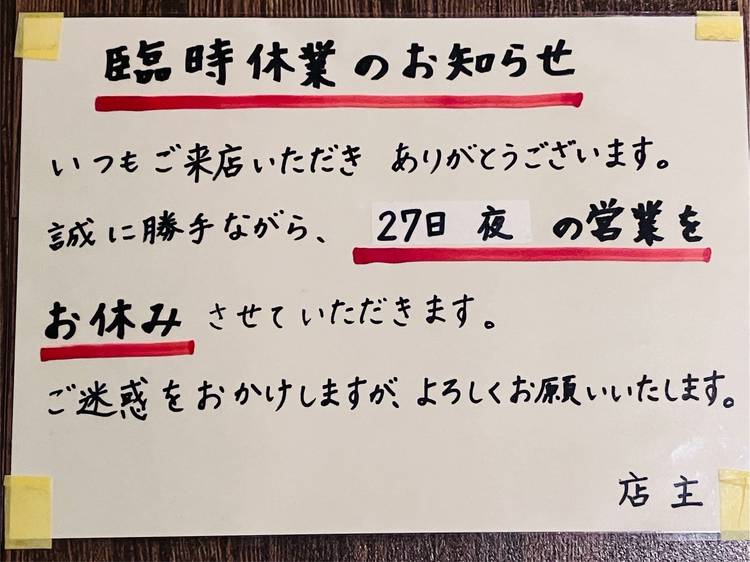 臨時休業のお知らせ
いつもご来店いただき ありがとうございます。
誠に勝手ながら、 27日 夜 の営業を
お休み させていただきます。
ご迷惑をおかけしますが、よろしくお願いいたします。
店主